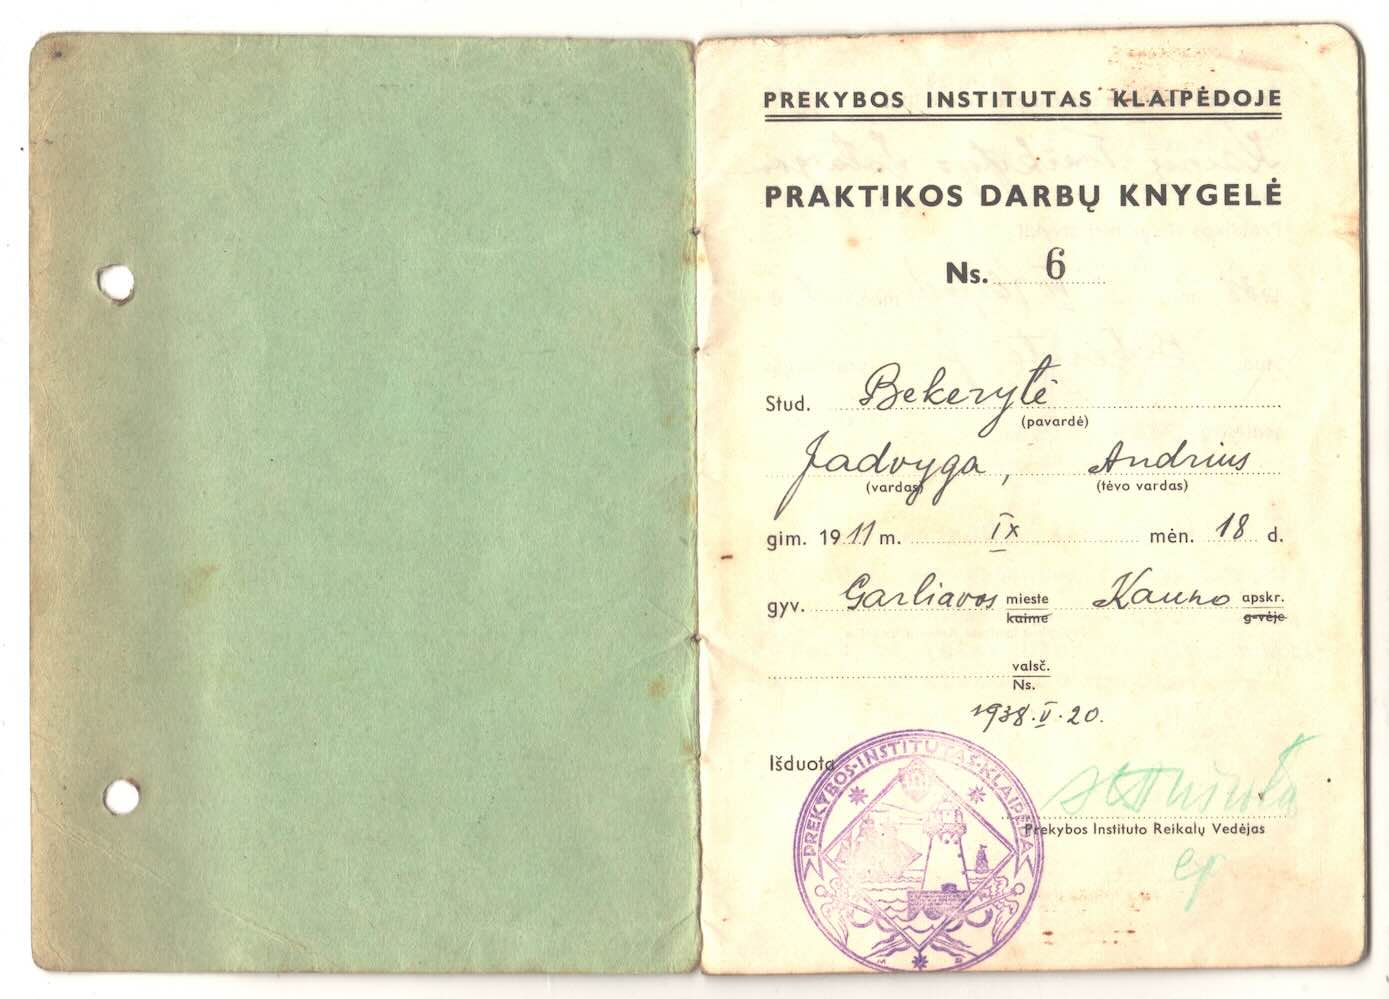 PREKYBOS INSTITUTAS KLAIPĖDOJE
PRAKTIKOS DARBŲ KNYGELĖ
Ns. 6
Stud. Bekerytė
(pavardė)
Jadvyga, Andrius
(vardas) (tėvo vardas)
gim. 1911 m. IX mėn. 18 d.
gyv. Garliavos mieste Kauno apskr.
kaime g-vėje
valsč.
Ns.
1938.V.20.
Išduota
PREKYBOS·INSTITUTAS·KLAIPĖDA
Prekybos Instituto Reikalų Vedėjas